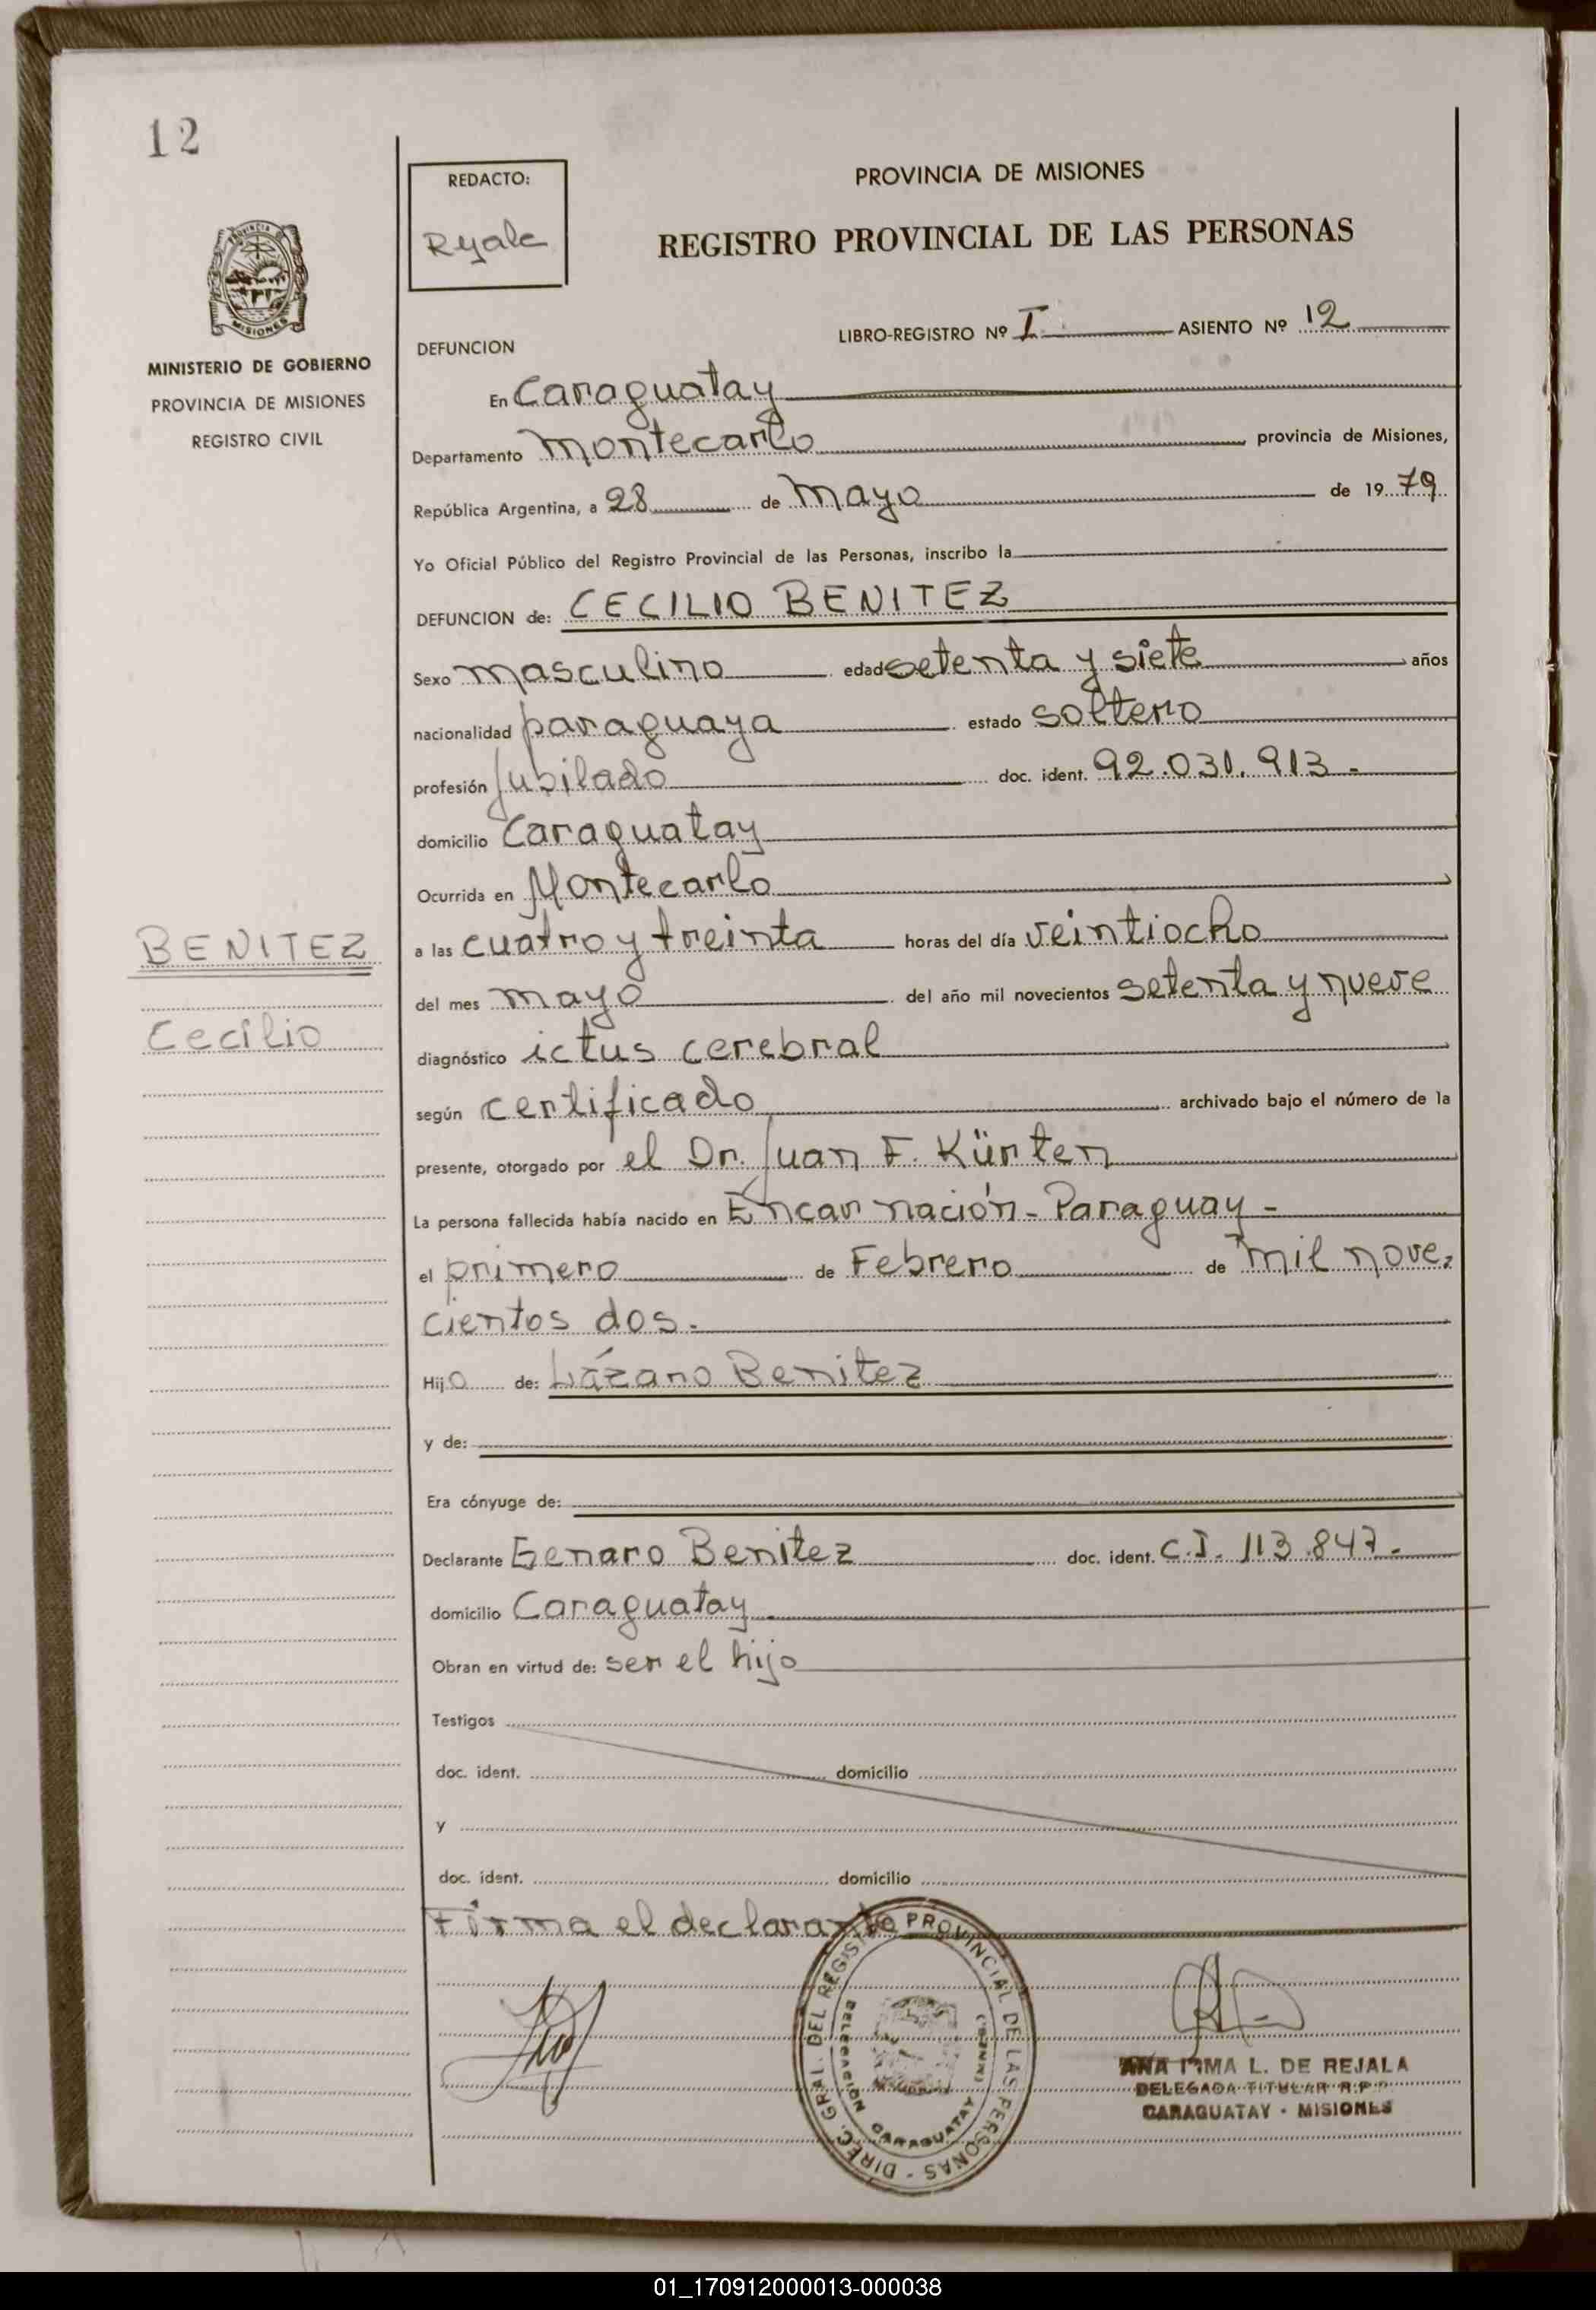 12
REDACTO:
PROVINCIA DE MISIONES
REGISTRO PROVINCIAL DE LAS PERSONAS
MISIONES
MINISTERIO DE GOBIERNO
PROVINCIA DE MISIONES
REGISTRO CIVIL
LIBRO-REGISTRO Nº I ASIENTO Nº 12
DEFUNCION
En Caraguatay
Departamento Montecarlo provincia de Misiones,
República Argentina, a 28 de Mayo de 1979
Yo Oficial Público del Registro Provincial de las Personas, inscribo la
DEFUNCION de: CECILIO BENITEZ
Sexo masculino edad setenta y siete años
nacionalidad paraguaya estado soltero
profesión Jubilado doc. ident. 92.031.913.-
domicilio Caraguatay
Ocurrida en Montecarlo
BENITEZ
Cecilio
a las cuatro y treinta horas del día veintiocho
del mes mayo del año mil novecientos setenta y nueve
diagnóstico ictus cerebral
según certificado archivado bajo el número de la
presente, otorgado por el Dr. Juan F. Kürten
La persona fallecida había nacido en Encarnación - Paraguay -
el primero de Febrero de mil nove-
cientos dos.-
Hijo de: Lázaro Benitez
y de:
Era cónyuge de:
Declarante Genaro Benitez doc. ident. C.I. 113.847.-
domicilio Caraguatay
Obran en virtud de: ser el hijo
Testigos
doc. ident. domicilio
y
doc. ident. domicilio
Firma el declarante
DIREC. GRAL. DEL REGISTRO PROVINCIAL DE LAS PERSONAS -
DELEGACION CARAGUATAY
ANA IRMA L. DE REJALA
DELEGADA TITULAR R.P.P.
CARAGUATAY - MISIONES
01_170912000013-000038